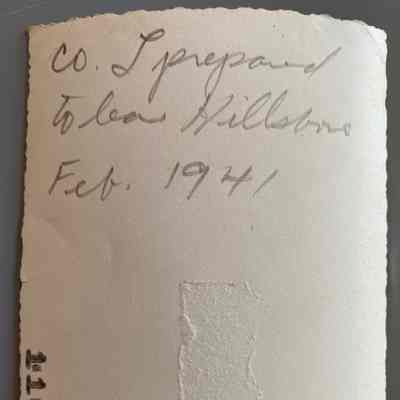 Co. I prepared
to leave Hillsboro
Feb. 1941
11